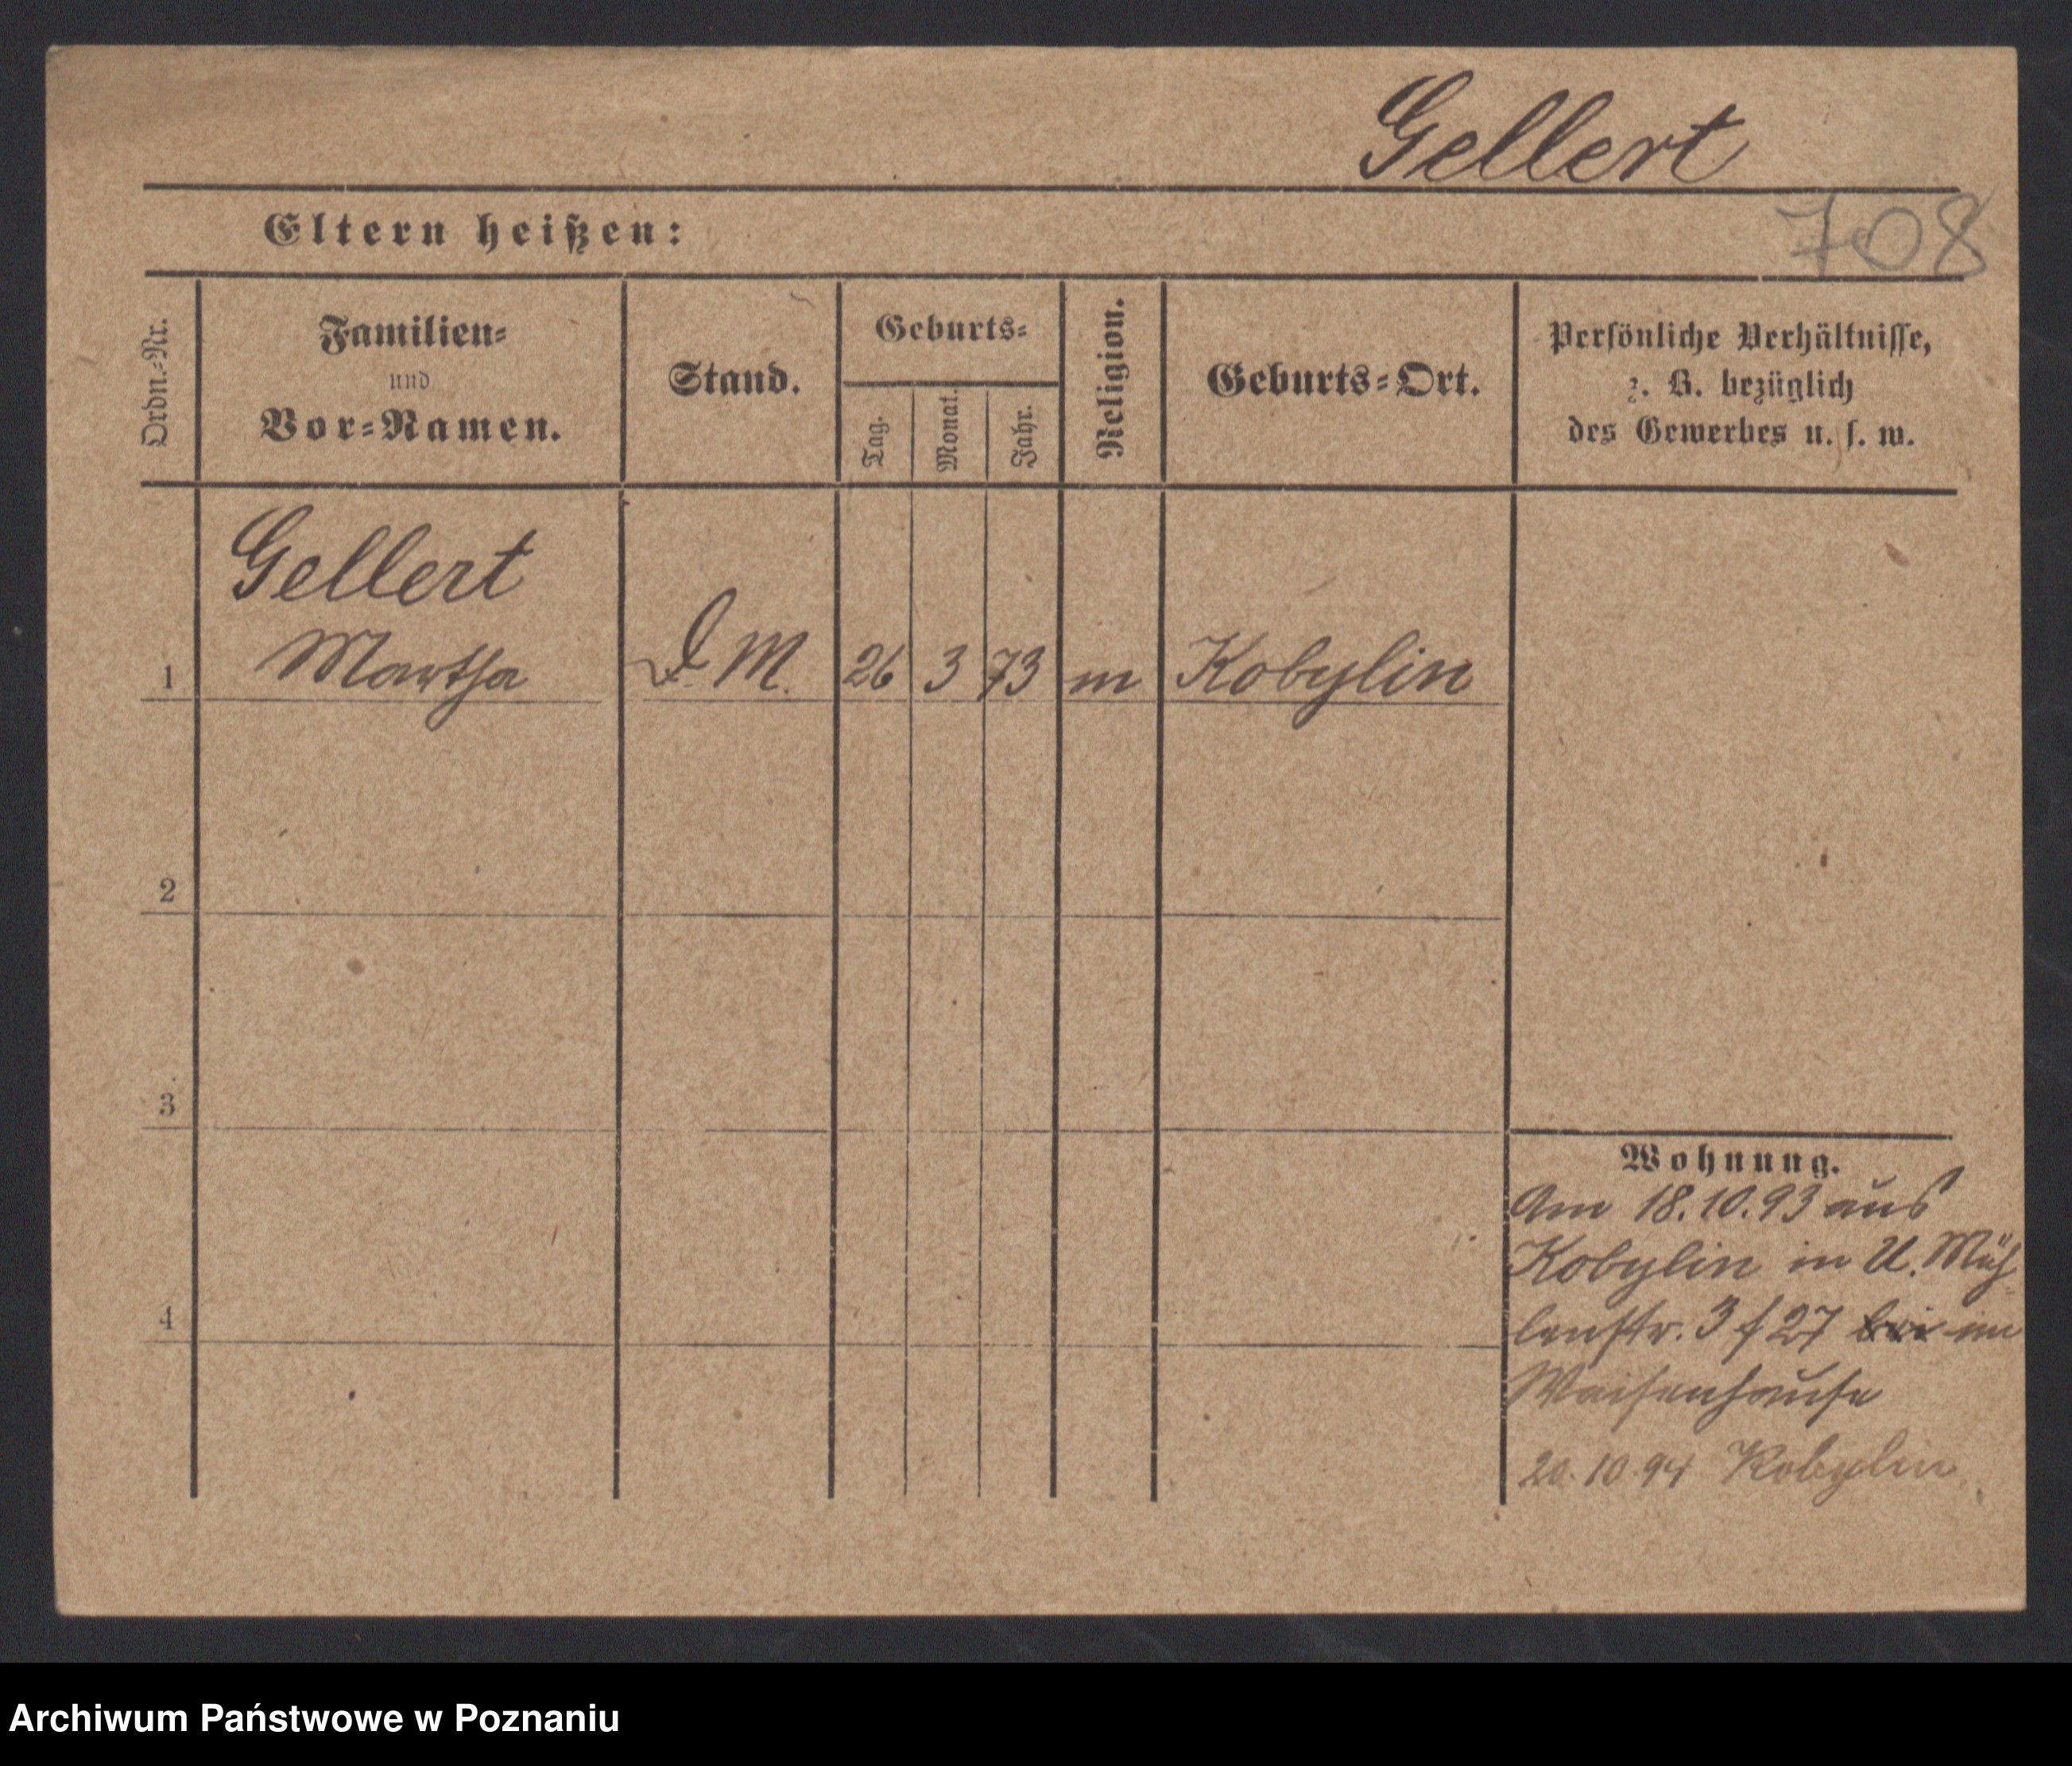 Gellert
708
Eltern heißen:
Ordn.-Nr.
Familien-
und
Vor-Namen.
Stand.
Geburts-
Tag.
Monat.
Jahr.
Religion.
Geburts-Ort.
Persönliche Verhältnisse,
z. B. bezüglich
des Gewerbes u. s. w.
Gellert
1 Martha D. M. 26 3 73 m Kobylin
2
3
4
Wohnung.
Am 18.10.93 aus
Kobylin in U. Müh-
lenstr. 3 f 27 bei im
Waisenhause
20.10.94 Kobylin
Archiwum Państwowe w Poznaniu